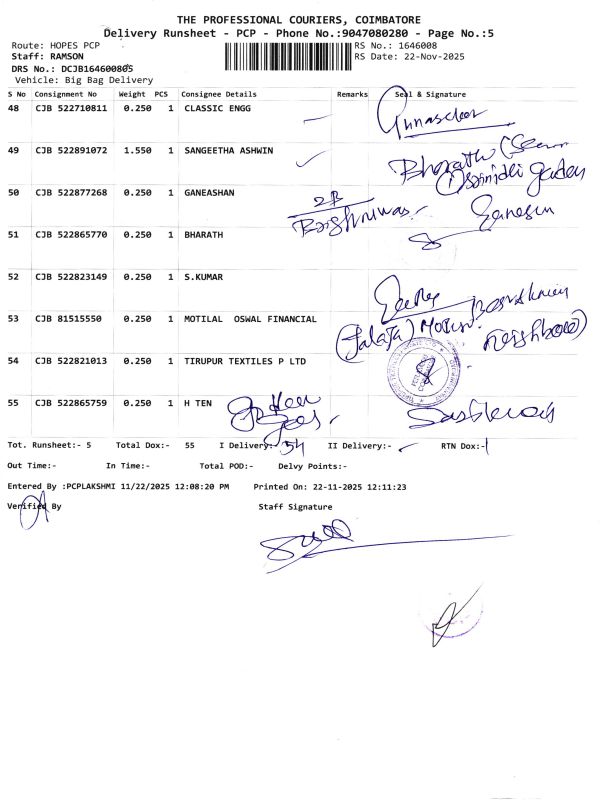 THE PROFESSIONAL COURIERS, COIMBATORE
Delivery Runsheet - PCP - Phone No.:9047080280 - Page No.:5
Route: HOPES PCP RS No.: 1646008
Staff: RAMSON RS Date: 22-Nov-2025
DRS No.: DCJB164600805
Vehicle: Big Bag Delivery
S No Consignment No Weight PCS Consignee Details Remarks Seal & Signature
48 CJB 522710811 0.250 1 CLASSIC ENGG
49 CJB 522891072 1.550 1 SANGEETHA ASHWIN
Bharath
50 CJB 522877268 0.250 1 GANEASHAN
2B
Ganesan
51 CJB 522865770 0.250 1 BHARATH
52 CJB 522823149 0.250 1 S.KUMAR
53 CJB 81515550 0.250 1 MOTILAL OSWAL FINANCIAL
54 CJB 522821013 0.250 1 TIRUPUR TEXTILES P LTD
55 CJB 522865759 0.250 1 H TEN
Tot. Runsheet:- 5 Total Dox:- 55 I Delivery:- 54 II Delivery:- RTN Dox:-1
Out Time:- In Time:- Total POD:- Delvy Points:-
Entered By :PCPLAKSHMI 11/22/2025 12:08:20 PM Printed On: 22-11-2025 12:11:23
Verified By Staff Signature